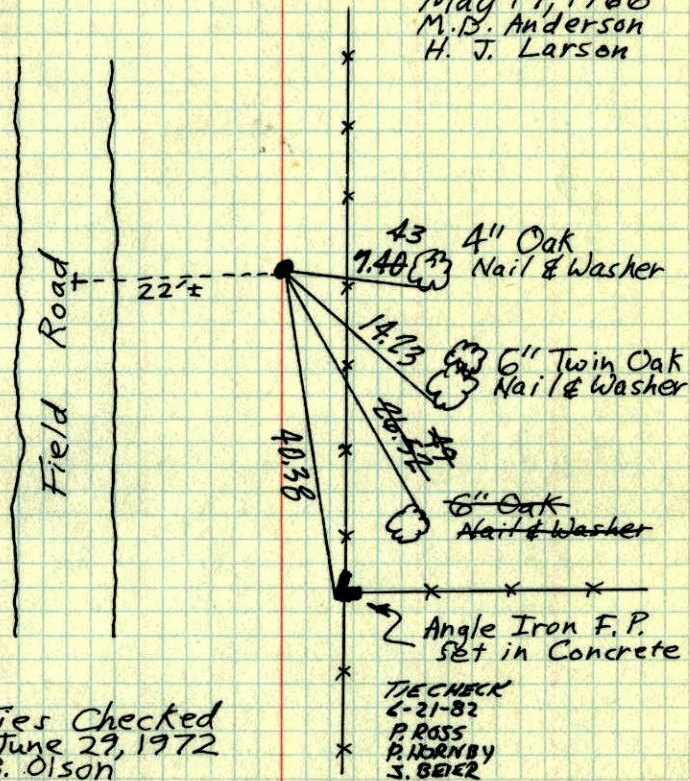 May 17, 1966
M.D. Anderson
H. J. Larson
43
9.40
4" Oak
Nail & Washer
22'±
Field Road
14.23
6" Twin Oak
Nail & Washer
26.52
49
40.38
6" Oak
Nail & Washer
Angle Iron F.P.
set in Concrete
TIE CHECK
6-21-82
P. ROSS
P. HORNBY
S. BEIER
Ties Checked
June 29, 1972
B. Olson